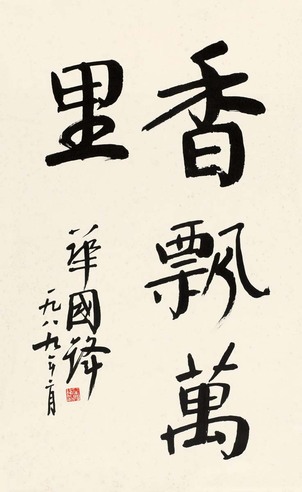 香飄萬
里
華國鋒
一九八九年二月